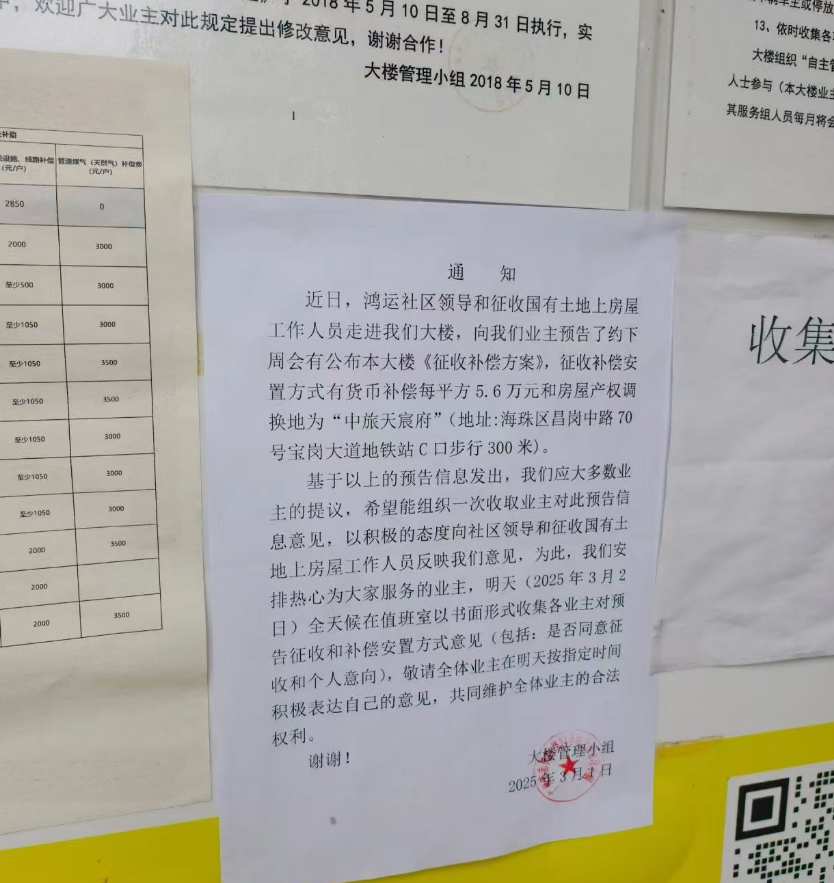 欢迎广大业主对此规定提出修改意见，谢谢合作！
2018年5月10日至8月31日执行，实
大楼管理小组 2018年5月10日
1
车主或停放
13、依时收集各
大楼组织“自主管
人士参与（本大楼业主
其服务组人员每月将会
补偿
设施、线路补偿（元/户）
管道煤气（天然气）补偿费（元/户）
2850 0
2000 3000
至少500 3000
至少1050 3000
至少1050 3500
至少1050 3500
至少1050 3000
至少1050 3000
至少1050 3000
2000 3500
2000
2000 3500
通 知
近日，鸿运社区领导和征收国有土地上房屋
工作人员走进我们大楼，向我们业主预告了约下
周会有公布本大楼《征收补偿方案》，征收补偿安
置方式有货币补偿每平方 5.6 万元和房屋产权调
换地为“中旅天宸府”（地址:海珠区昌岗中路 70
号宝岗大道地铁站 C 口步行 300 米)。
基于以上的预告信息发出，我们应大多数业
主的提议，希望能组织一次收取业主对此预告信
息意见，以积极的态度向社区领导和征收国有土
地上房屋工作人员反映我们意见，为此，我们安
排热心为大家服务的业主，明天（2025 年 3 月 2
日）全天候在值班室以书面形式收集各业主对预
告征收和补偿安置方式意见（包括：是否同意征
收和个人意向），敬请全体业主在明天按指定时间
积极表达自己的意见，共同维护全体业主的合法
权利。
谢谢！
大楼管理小组
2025 年 3 月 1 日
收集